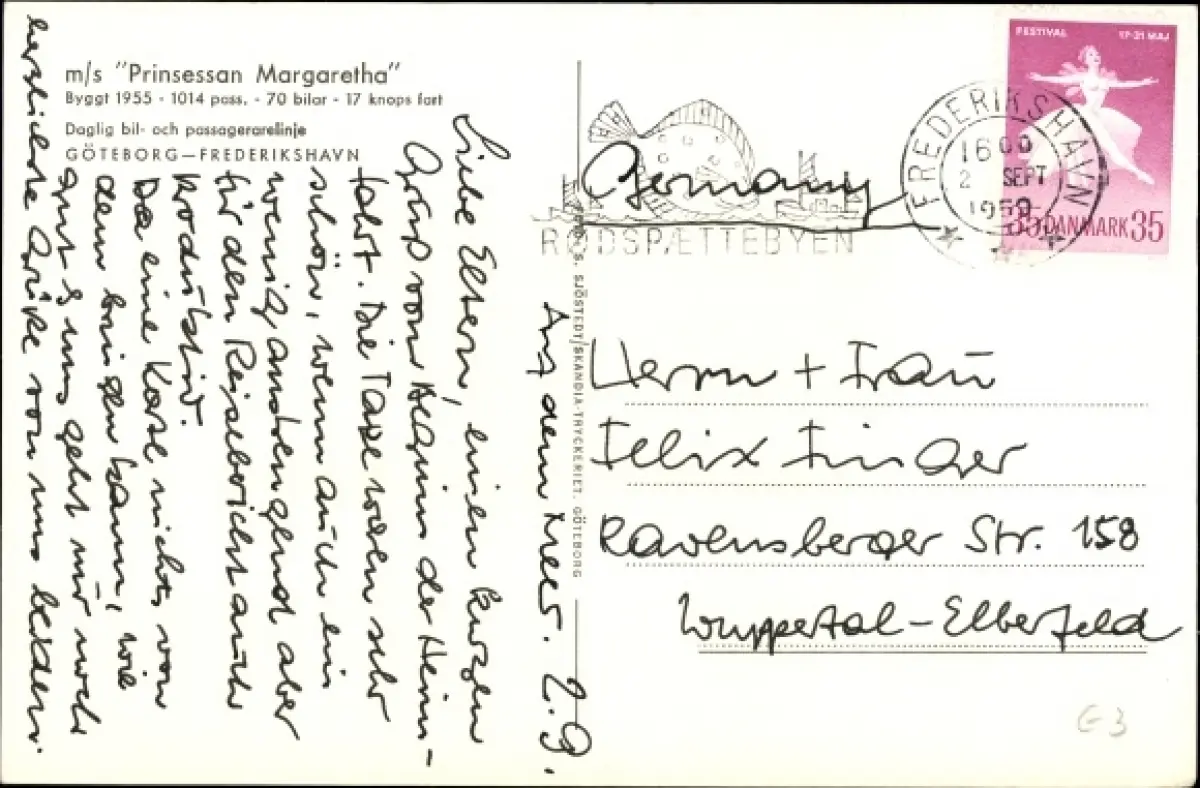 m/s "Prinsessan Margaretha"
Byggt 1955 - 1014 pass. - 70 bilar - 17 knops fart
Daglig bil- och passagerarelinje
GÖTEBORG—FREDERIKSHAVN
Auf dem Meer. 2.9.
Liebe Eltern, einen kurzen
Gruß vom Beginn der Heim-
fahrt. Die Tage waren sehr
schön, wenn auch ein
wenig anstrengend aber
für den Reisebericht auch
produktiv.
Da eine Karte nichts von
dem bringen kann, wie
gut es uns geht nur noch
herzlichste Grüße von uns beiden.
S. SJÖSTEDT/SKANDIA-TRYCKERIET. GÖTEBORG
FESTIVAL 17-31 MAJ
35 DANMARK 35
FREDERIKSHAVN
1600
2 SEPT
1959
RØDSPÆTTEBYEN
Germany
Herrn + Frau
Felix Finger
Ravensberger Str. 158
Wuppertal-Elberfeld
G3